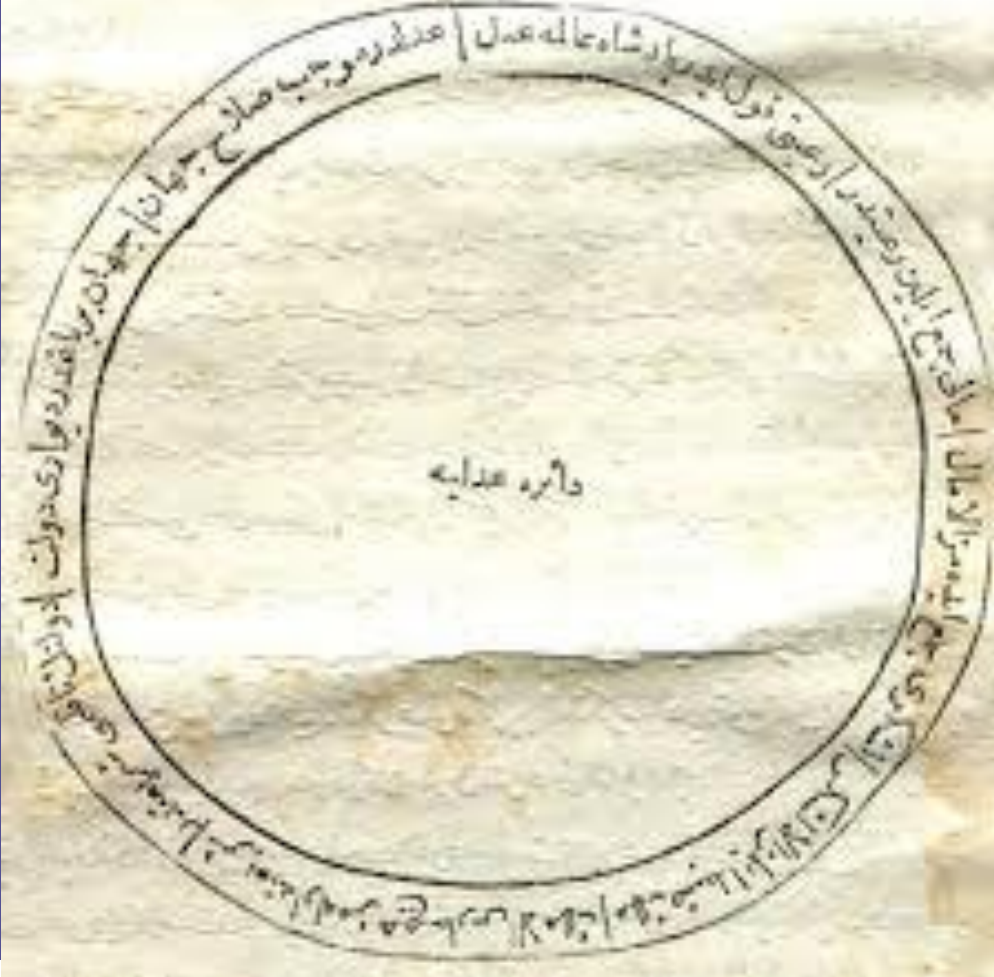 عدلدر موجب صلاح جهان | جهان بر باغدر ديواری دولت | دولتك ناظمی شريعتدر | شريعته اولمز هيچ حارس الا ملك | ملك ضبط ايلمز الا لشكر | لشكری جمع ايدمز الا مال | مالی جمع ايلين رعيتدر | رعيتی قول ايدر پادشاه عالمه عدل |
دائره عدليه